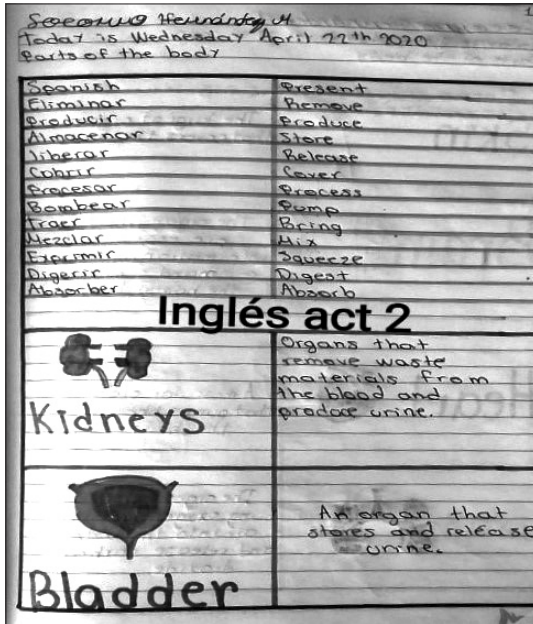 Hernández H
Today is Wednesday April 22th 2020
Parts of the body
Spanish Present
Eliminar Remove
Producir Produce
Almacenar Store
liberar Release
Cobrir Cover
Procesar Process
Bombear Pump
traer Bring
Mezclar Mix
Exprimir Squeeze
Digerir Digest
Absorber Absorb
Inglés act 2
Organs that
remove waste
materials from
the blood and
produce urine.
Kidneys
An organ that
stores and release
urine.
Bladder